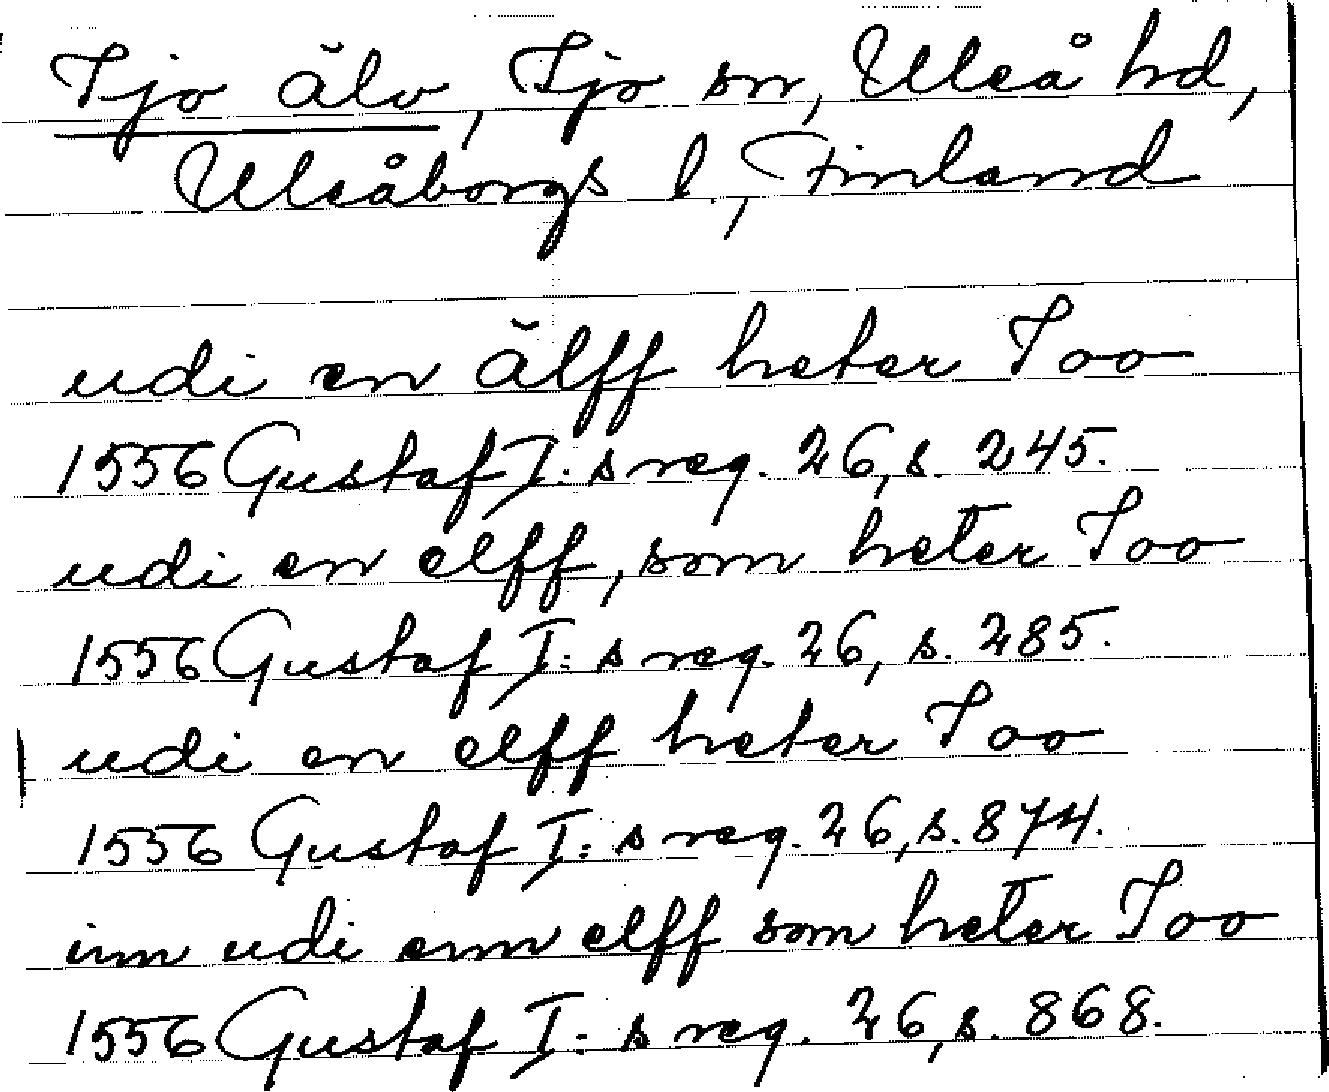 Ijo älv, Ijo sn, Uleå hd,
Uleåborgs l, Finland
udi en älff heter Ioo
1556 Gustaf I:s reg. 26, s. 245.
udi en elff, som heter Ioo
1556 Gustaf I:s reg. 26, s. 285.
udi en elff heter Ioo
1556 Gustaf I:s reg. 26, s. 874.
inn udi enn elff som heter Ioo
1556 Gustaf I:s reg. 26, s. 868.